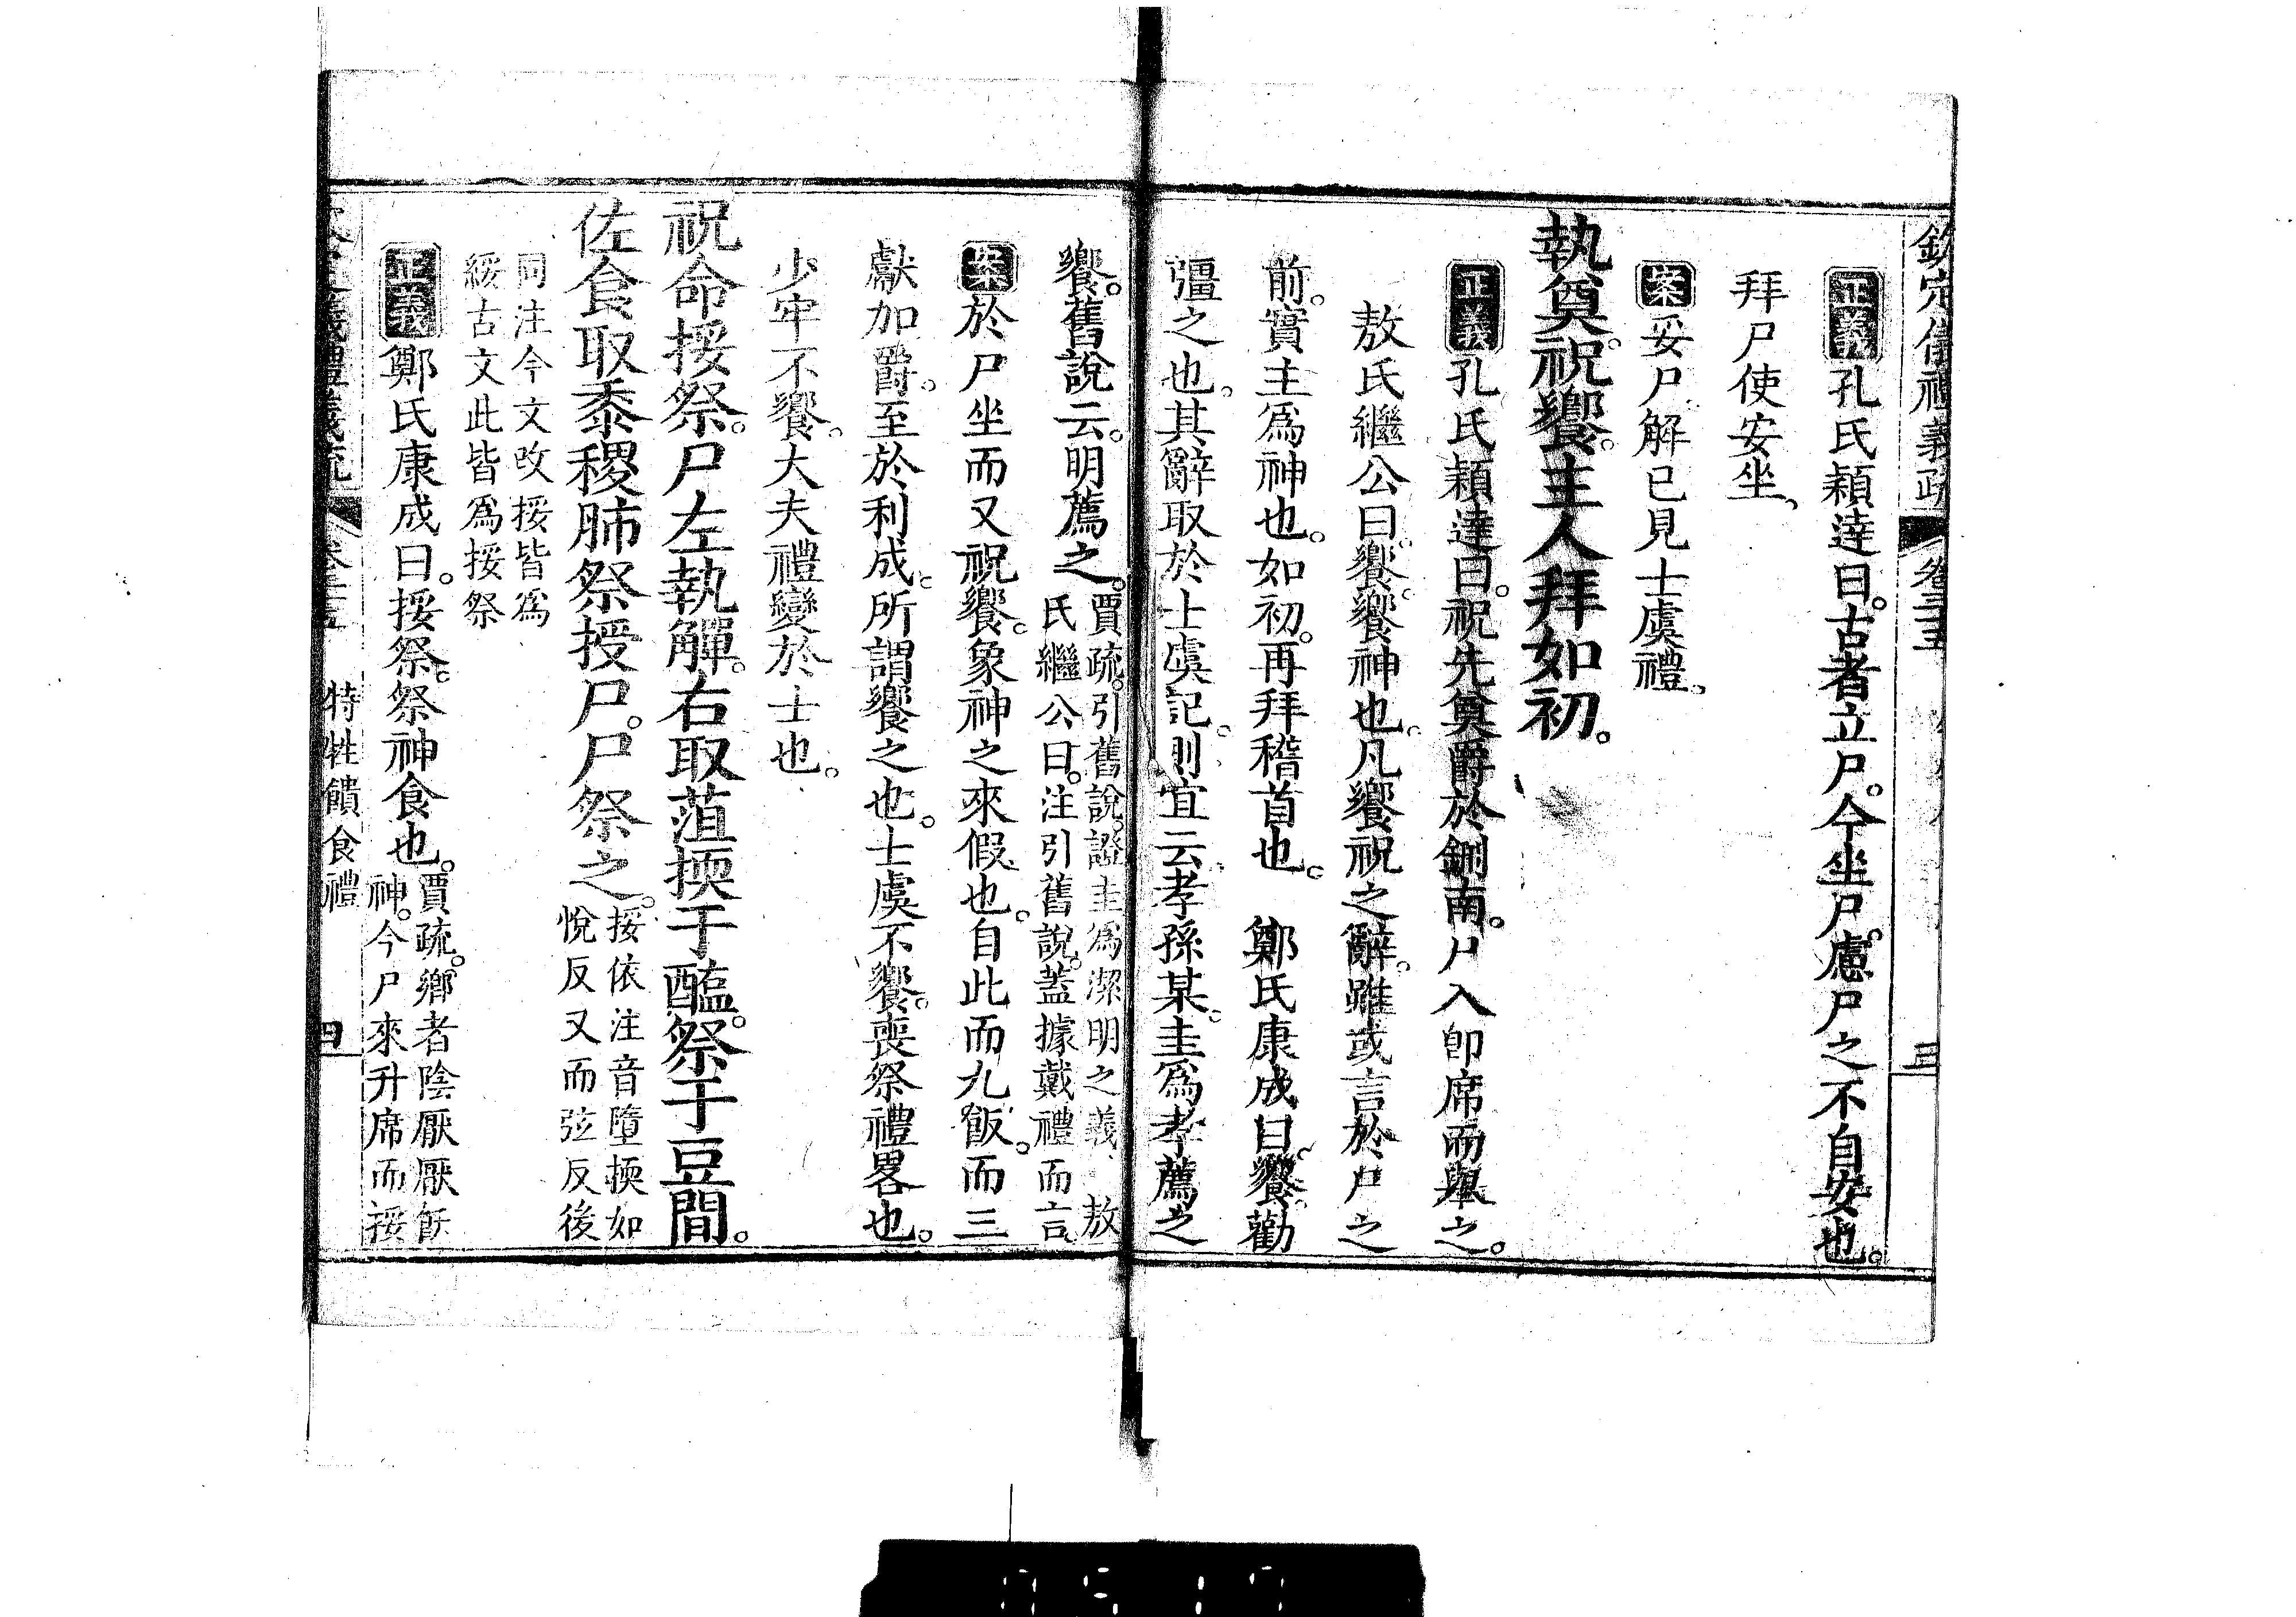 欽定儀禮義疏 卷三十五 三
正義孔氏穎達曰。古者立尸。今坐尸。慮尸之不自安也。
拜尸使安坐、
案妥尸解已見士虞禮、
執奠。祝饗。主人拜如初。
正義孔氏穎達曰。祝先奠爵於鉶南。尸入卽席而舉之。
敖氏繼公曰。饗。饗神也。凡饗祝之辭。雖或言於尸之
前。實主爲神也。如初。再拜稽首也。 鄭氏康成曰。饗。勸
彊之也。其辭取於士虞記。則宜云。孝孫某。圭爲孝薦之
饗。舊說云。明薦之。賈疏。引舊說。證圭爲潔明之義、 敖
氏繼公曰。注引舊說。蓋據戴禮而言。
案於尸坐而又祝饗。象神之來假也。自此而九飯。而三
獻加爵。至於利成。所謂饗之也。士虞不饗。喪祭禮畧也。
少牢不饗。大夫禮變於士也。
祝命挼祭。尸左執觶。右取菹㨎于醢。祭于豆間。
佐食取黍稷肺祭授尸。尸祭之。挼依注音墮㨎如
悅反又而弦反後
同注今文改挼皆爲
綏古文此皆爲挼祭
正義鄭氏康成曰。挼祭。祭神食也。賈疏。鄉者陰厭厭飫
神。今尸來升席而挼
義禮義疏 卷三十五 特牲饋食禮 四